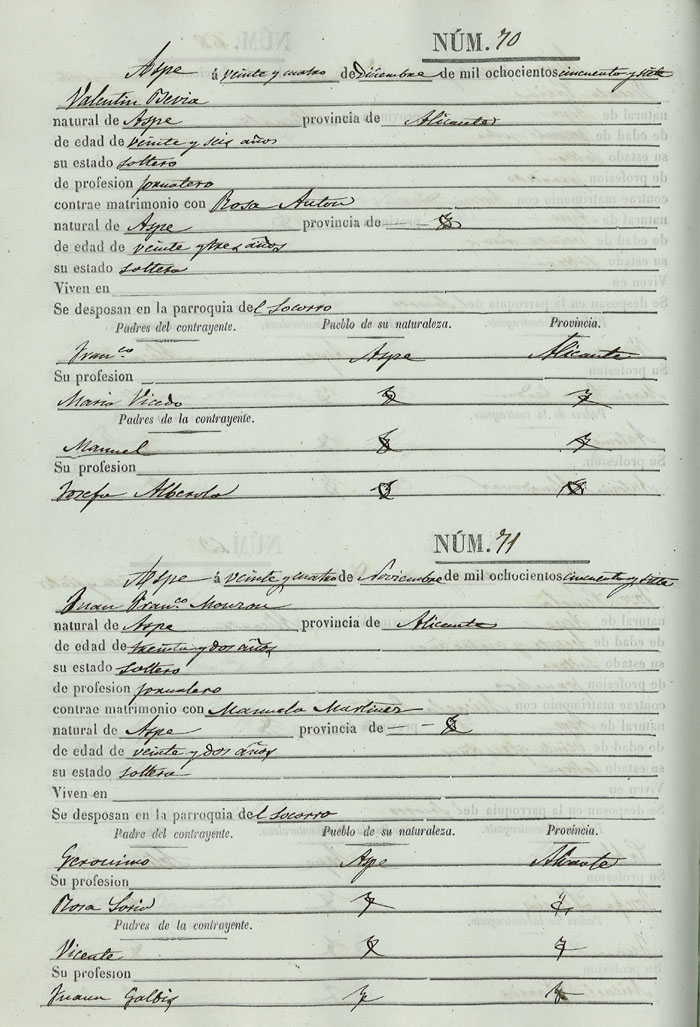 NÚM. 70
Aspe á veinte y cuatro de Diciembre de mil ochocientos cincuenta y siete
Valentin Bevia
natural de Aspe provincia de Alicante
de edad de veinte y seis años
su estado soltero
de profesion jornalero
contrae matrimonio con Rosa Anton
natural de Aspe provincia de
de edad de veinte y tres años
su estado soltera
Viven en
Se desposan en la parroquia del Socorro
Padres del contrayente. Pueblo de su naturaleza. Provincia.
Franco Aspe Alicante
Su profesion
Maria Vicedo
Padres de la contrayente.
Manuel
Su profesion
Josefa Alberola
NÚM. 71
Aspe á veinte y cuatro de Noviembre de mil ochocientos cincuenta y siete
Juan Franco Monzon
natural de Aspe provincia de Alicante
de edad de treinta y dos años
su estado soltero
de profesion jornalero
contrae matrimonio con Manuela Martinez
natural de Aspe provincia de
de edad de veinte y dos años
su estado soltera
Viven en
Se desposan en la parroquia del Socorro
Padre del contrayente. Pueblo de su naturaleza. Provincia.
Geronimo Aspe Alicante
Su profesion
Rosa Soria
Padres de la contrayente.
Vicente
Su profesion
Juana Galbis